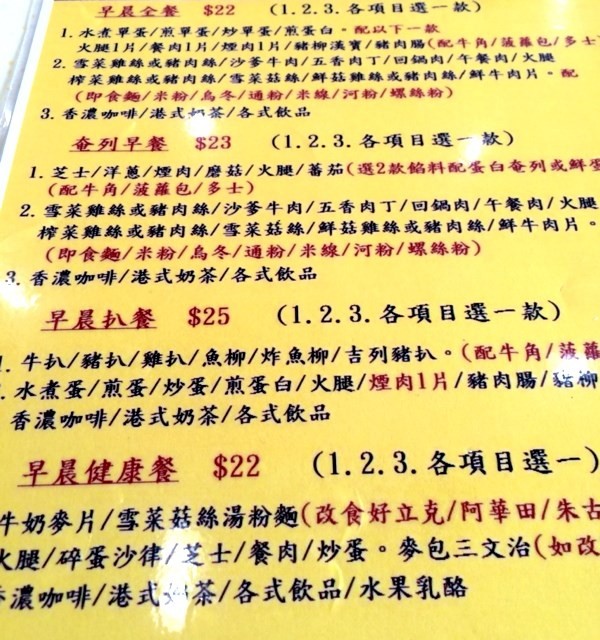 早晨全餐 $22 (1.2.3.各項目選一款)
1.水煮單蛋/煎單蛋/炒單蛋/煎蛋白。配以下一款
火腿1片/餐肉1片/煙肉1片/豬柳漢寶/豬肉腸(配牛角/菠蘿包/多士
2.雪菜雞絲或豬肉絲/沙爹牛肉/五香肉丁/回鍋肉/午餐肉/火腿
榨菜雞絲或豬肉絲/雪菜菇絲/鮮菇雞絲或豬肉絲/鮮牛肉片。配
(即食麵/米粉/烏冬/通粉/米線/河粉/螺絲粉)
3.香濃咖啡/港式奶茶/各式飲品
奄列早餐 $23 (1.2.3.各項目選一款)
1.芝士/洋蔥/煙肉/磨菇/火腿/蕃茄(選2款餡料配蛋白奄列或鮮蛋
(配牛角/菠蘿包/多士)
2.雪菜雞絲或豬肉絲/沙爹牛肉/五香肉丁/回鍋肉/午餐肉/火腿
榨菜雞絲或豬肉絲/雪菜菇絲/鮮菇雞絲或豬肉絲/鮮牛肉片。
(即食麵/米粉/烏冬/通粉/米線/河粉/螺絲粉)
3.香濃咖啡/港式奶茶/各式飲品
早晨扒餐 $25 (1.2.3.各項目選一款)
1.牛扒/豬扒/雞扒/魚柳/炸魚柳/吉列豬扒。(配牛角/菠蘿
.水煮蛋/煎蛋/炒蛋/煎蛋白/火腿/煙肉1片/豬肉腸/豬柳
香濃咖啡/港式奶茶/各式飲品
早晨健康餐 $22 (1.2.3.各項目選一)
牛奶麥片/雪菜菇絲湯粉麵(改食好立克/阿華田/朱古
火腿/碎蛋沙律/芝士/餐肉/炒蛋。麥包三文治(如改
香濃咖啡/港式奶茶/各式飲品/水果乳酪